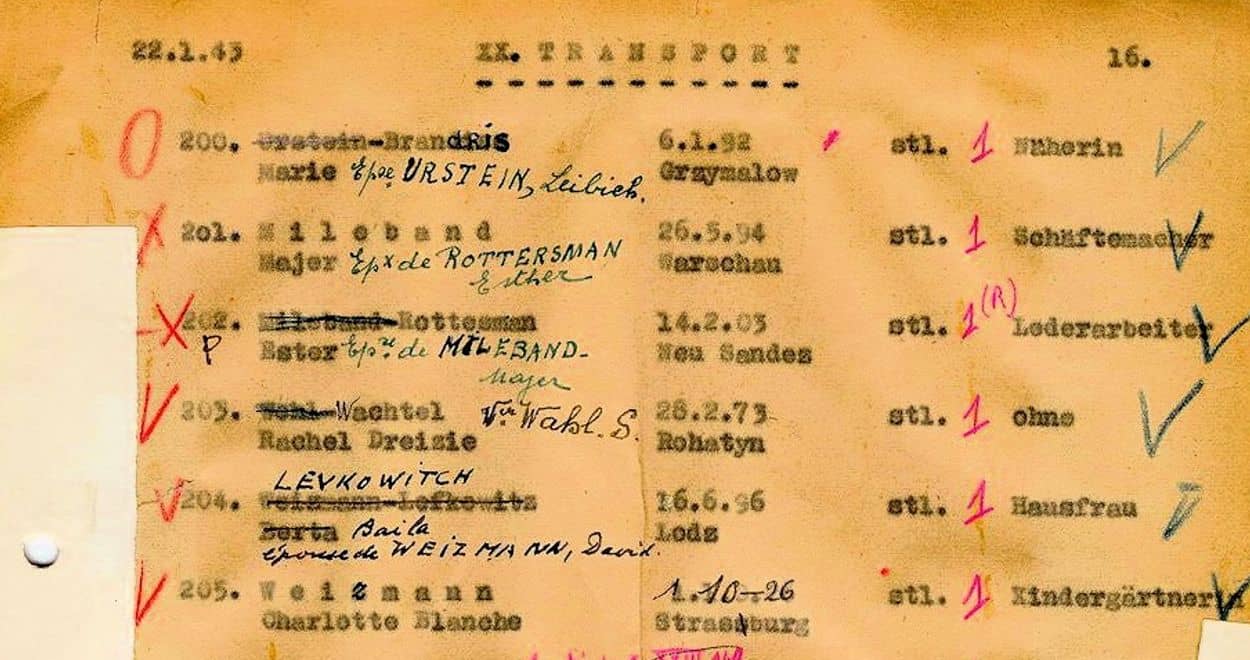 22.1.43 XX. TRANSPORT 16.
200. Urstein-BrandRIS 6.1.92 stl. 1 Näherin
Marie Epse URSTEIN, Leibich. Grzymalow
201. Mileband 26.5.94 stl. 1 Schäftemacher
Majer Epx de ROTTERSMAN Warschau
Esther
202. Mileband-Rottesman 14.2.03 stl. 1 (R) Lederarbeiter
P Ester Epse de MILEBAND- Neu Sandez
Majer
203. Wohl-Wachtel Vve Wahl. S. 28.2.73 stl. 1 ohne
Rachel Dreizie Rohatyn
LEVKOWITCH
204. Weizmann-Lefkowitz 16.6.96 stl. 1 Hausfrau
Berta Baila Lodz
épouse de WEIZMANN, David.
205. Weizmann 1.10-26 stl. 1 Kindergärtnerin
Charlotte Blanche Strassburg